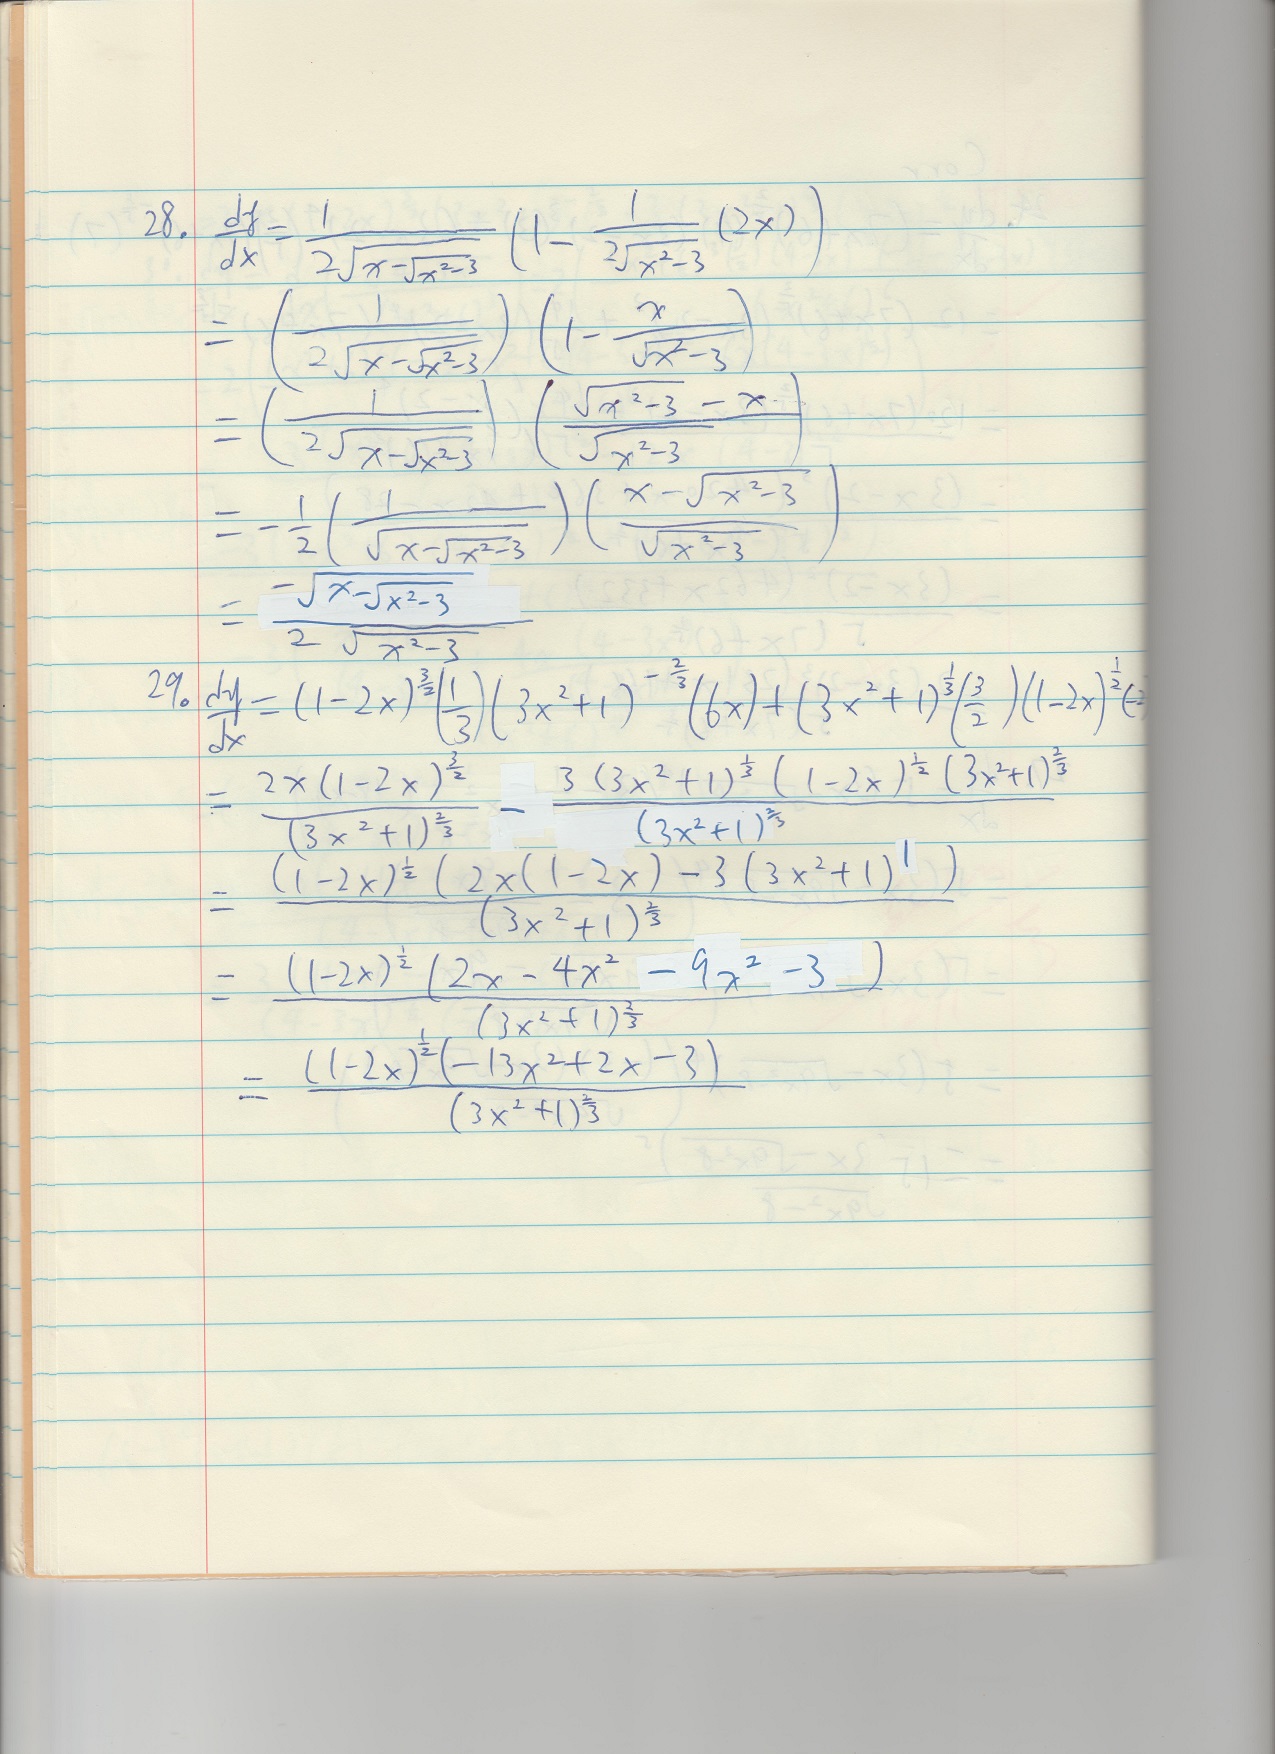 28. dy/dx = 1/(2√(x-√(x²-3))) (1 - 1/(2√(x²-3)) (2x))
= (1/(2√(x-√(x²-3)))) (1 - x/√(x²-3))
= (1/(2√(x-√(x²-3)))) ((√(x²-3) - x)/√(x²-3))
= -1/2 (1/√(x-√(x²-3))) ((x-√(x²-3))/√(x²-3))
= -√(x-√(x²-3))/(2√(x²-3))
29. dy/dx = (1-2x)^(3/2) (1/3)(3x²+1)^(-2/3) (6x) + (3x²+1)^(1/3) (3/2)(1-2x)^(1/2) (-2
= 2x(1-2x)^(3/2)/(3x²+1)^(2/3) - 3(3x²+1)^(1/3) (1-2x)^(1/2) (3x²+1)^(2/3)/(3x²+1)^(2/3)
= (1-2x)^(1/2) (2x(1-2x) - 3(3x²+1)^1)/(3x²+1)^(2/3)
= (1-2x)^(1/2) (2x - 4x² - 9x² - 3)/(3x²+1)^(2/3)
= (1-2x)^(1/2) (-13x²+2x-3)/(3x²+1)^(2/3)